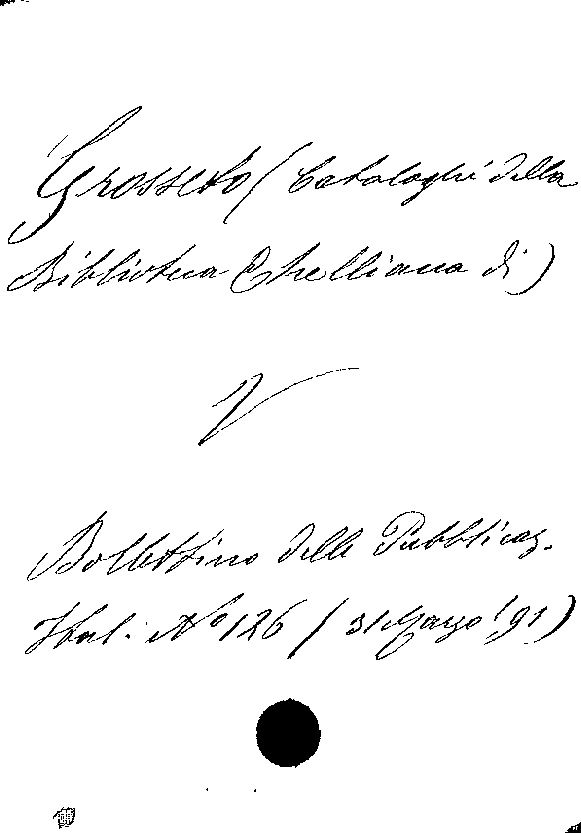 Grosseto (Cataloghi della
Biblioteca Chelliana di)
V
Bollettino delle Pubblicaz.
Ital. No 126 (31 Marzo '91)